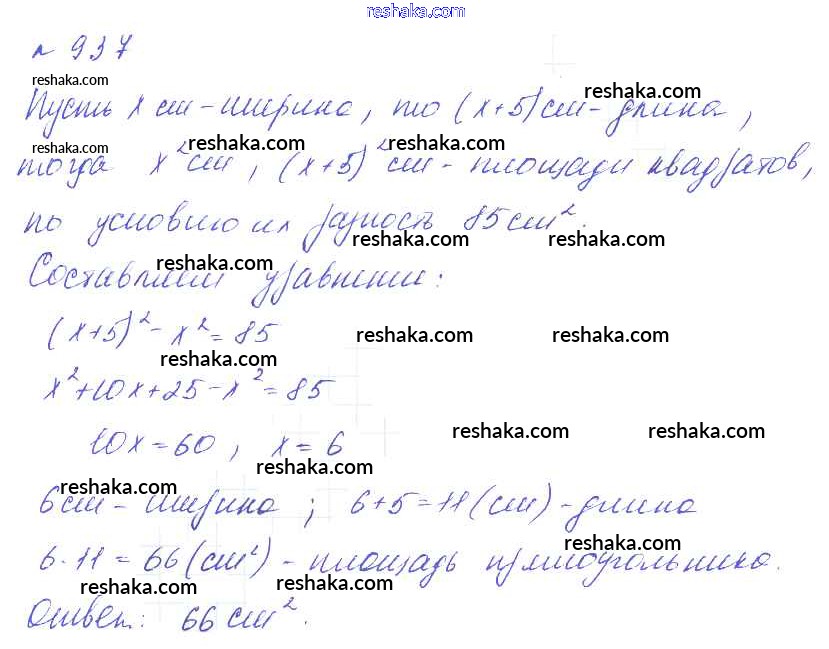 reshaka.com
№ 937
reshaka.com
reshaka.com
Пусть x см - ширина, то (x+5) см - длина,
reshaka.com reshaka.com reshaka.com
тогда x² см, (x+5)² см - площади квадратов,
по условию их разность 85 см².
reshaka.com reshaka.com
reshaka.com
Составляем уравнение:
(x+5)² - x² = 85
reshaka.com reshaka.com
reshaka.com
x² + 10x + 25 - x² = 85
10x = 60, x = 6
reshaka.com reshaka.com
reshaka.com
reshaka.com
6 см - ширина; 6 + 5 = 11 (см) - длина
reshaka.com
6 · 11 = 66 (см²) - площадь прямоугольника.
reshaka.com reshaka.com
Ответ: 66 см².